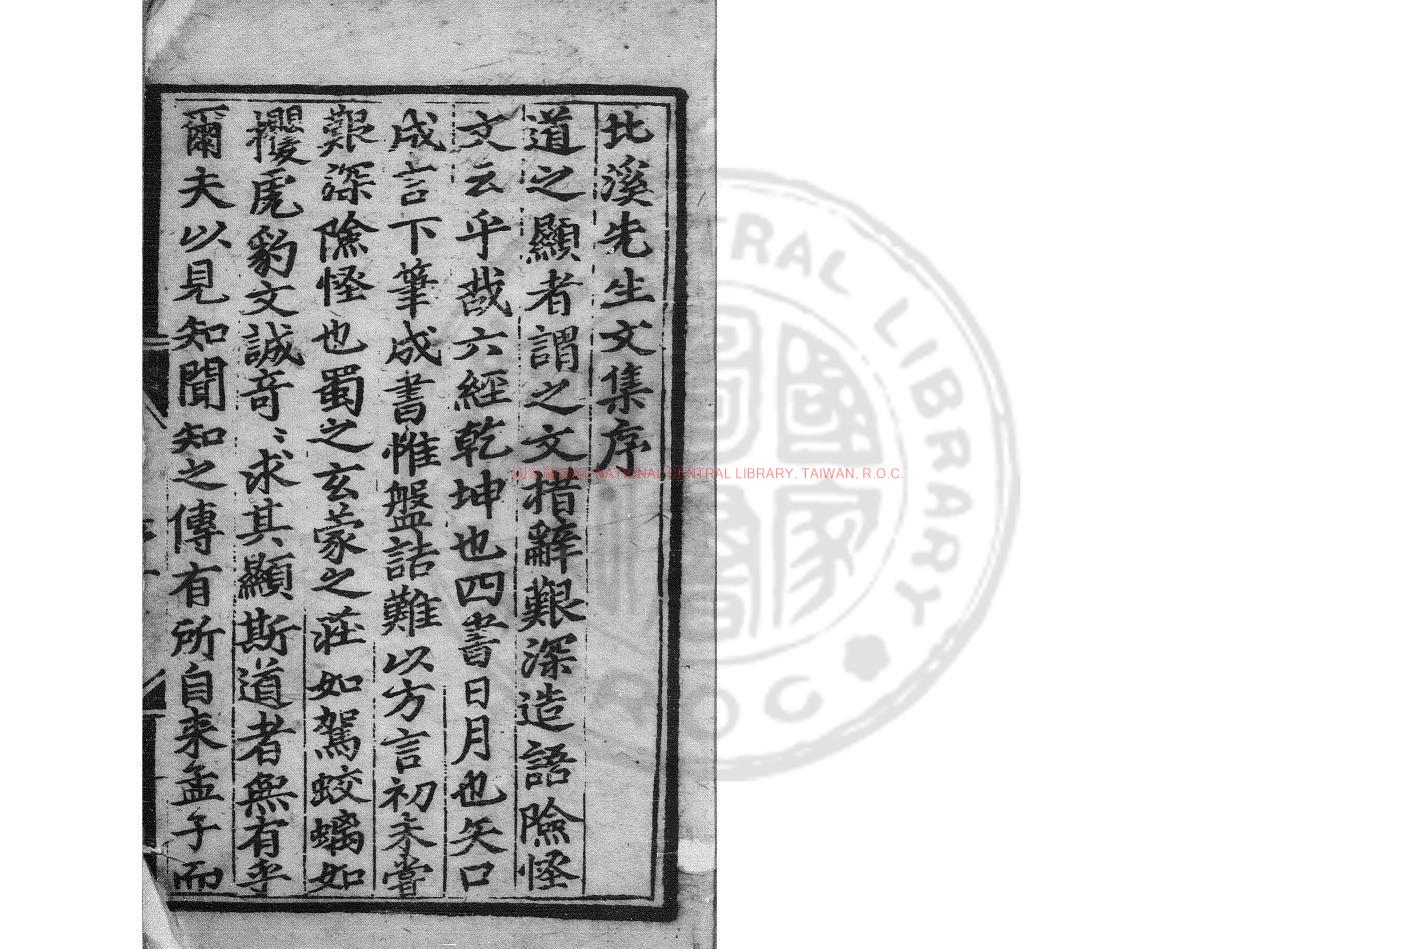 北溪先生文集序
道之顯者謂之文措辭艱深造語險怪
文云乎哉六經乾坤也四書日月也矢口
成言下筆成書惟盤誥難以方言初未嘗
艱深險怪也蜀之玄蒙之莊如駕蛟螭如
攖虎豹文誠奇〻求其顯斯道者無有乎
爾夫以見知聞知之傳有所自来孟子而
NATIONAL CENTRAL LIBRARY, TAIWAN, R.O.C.
TRAL LIBRARY
ROC